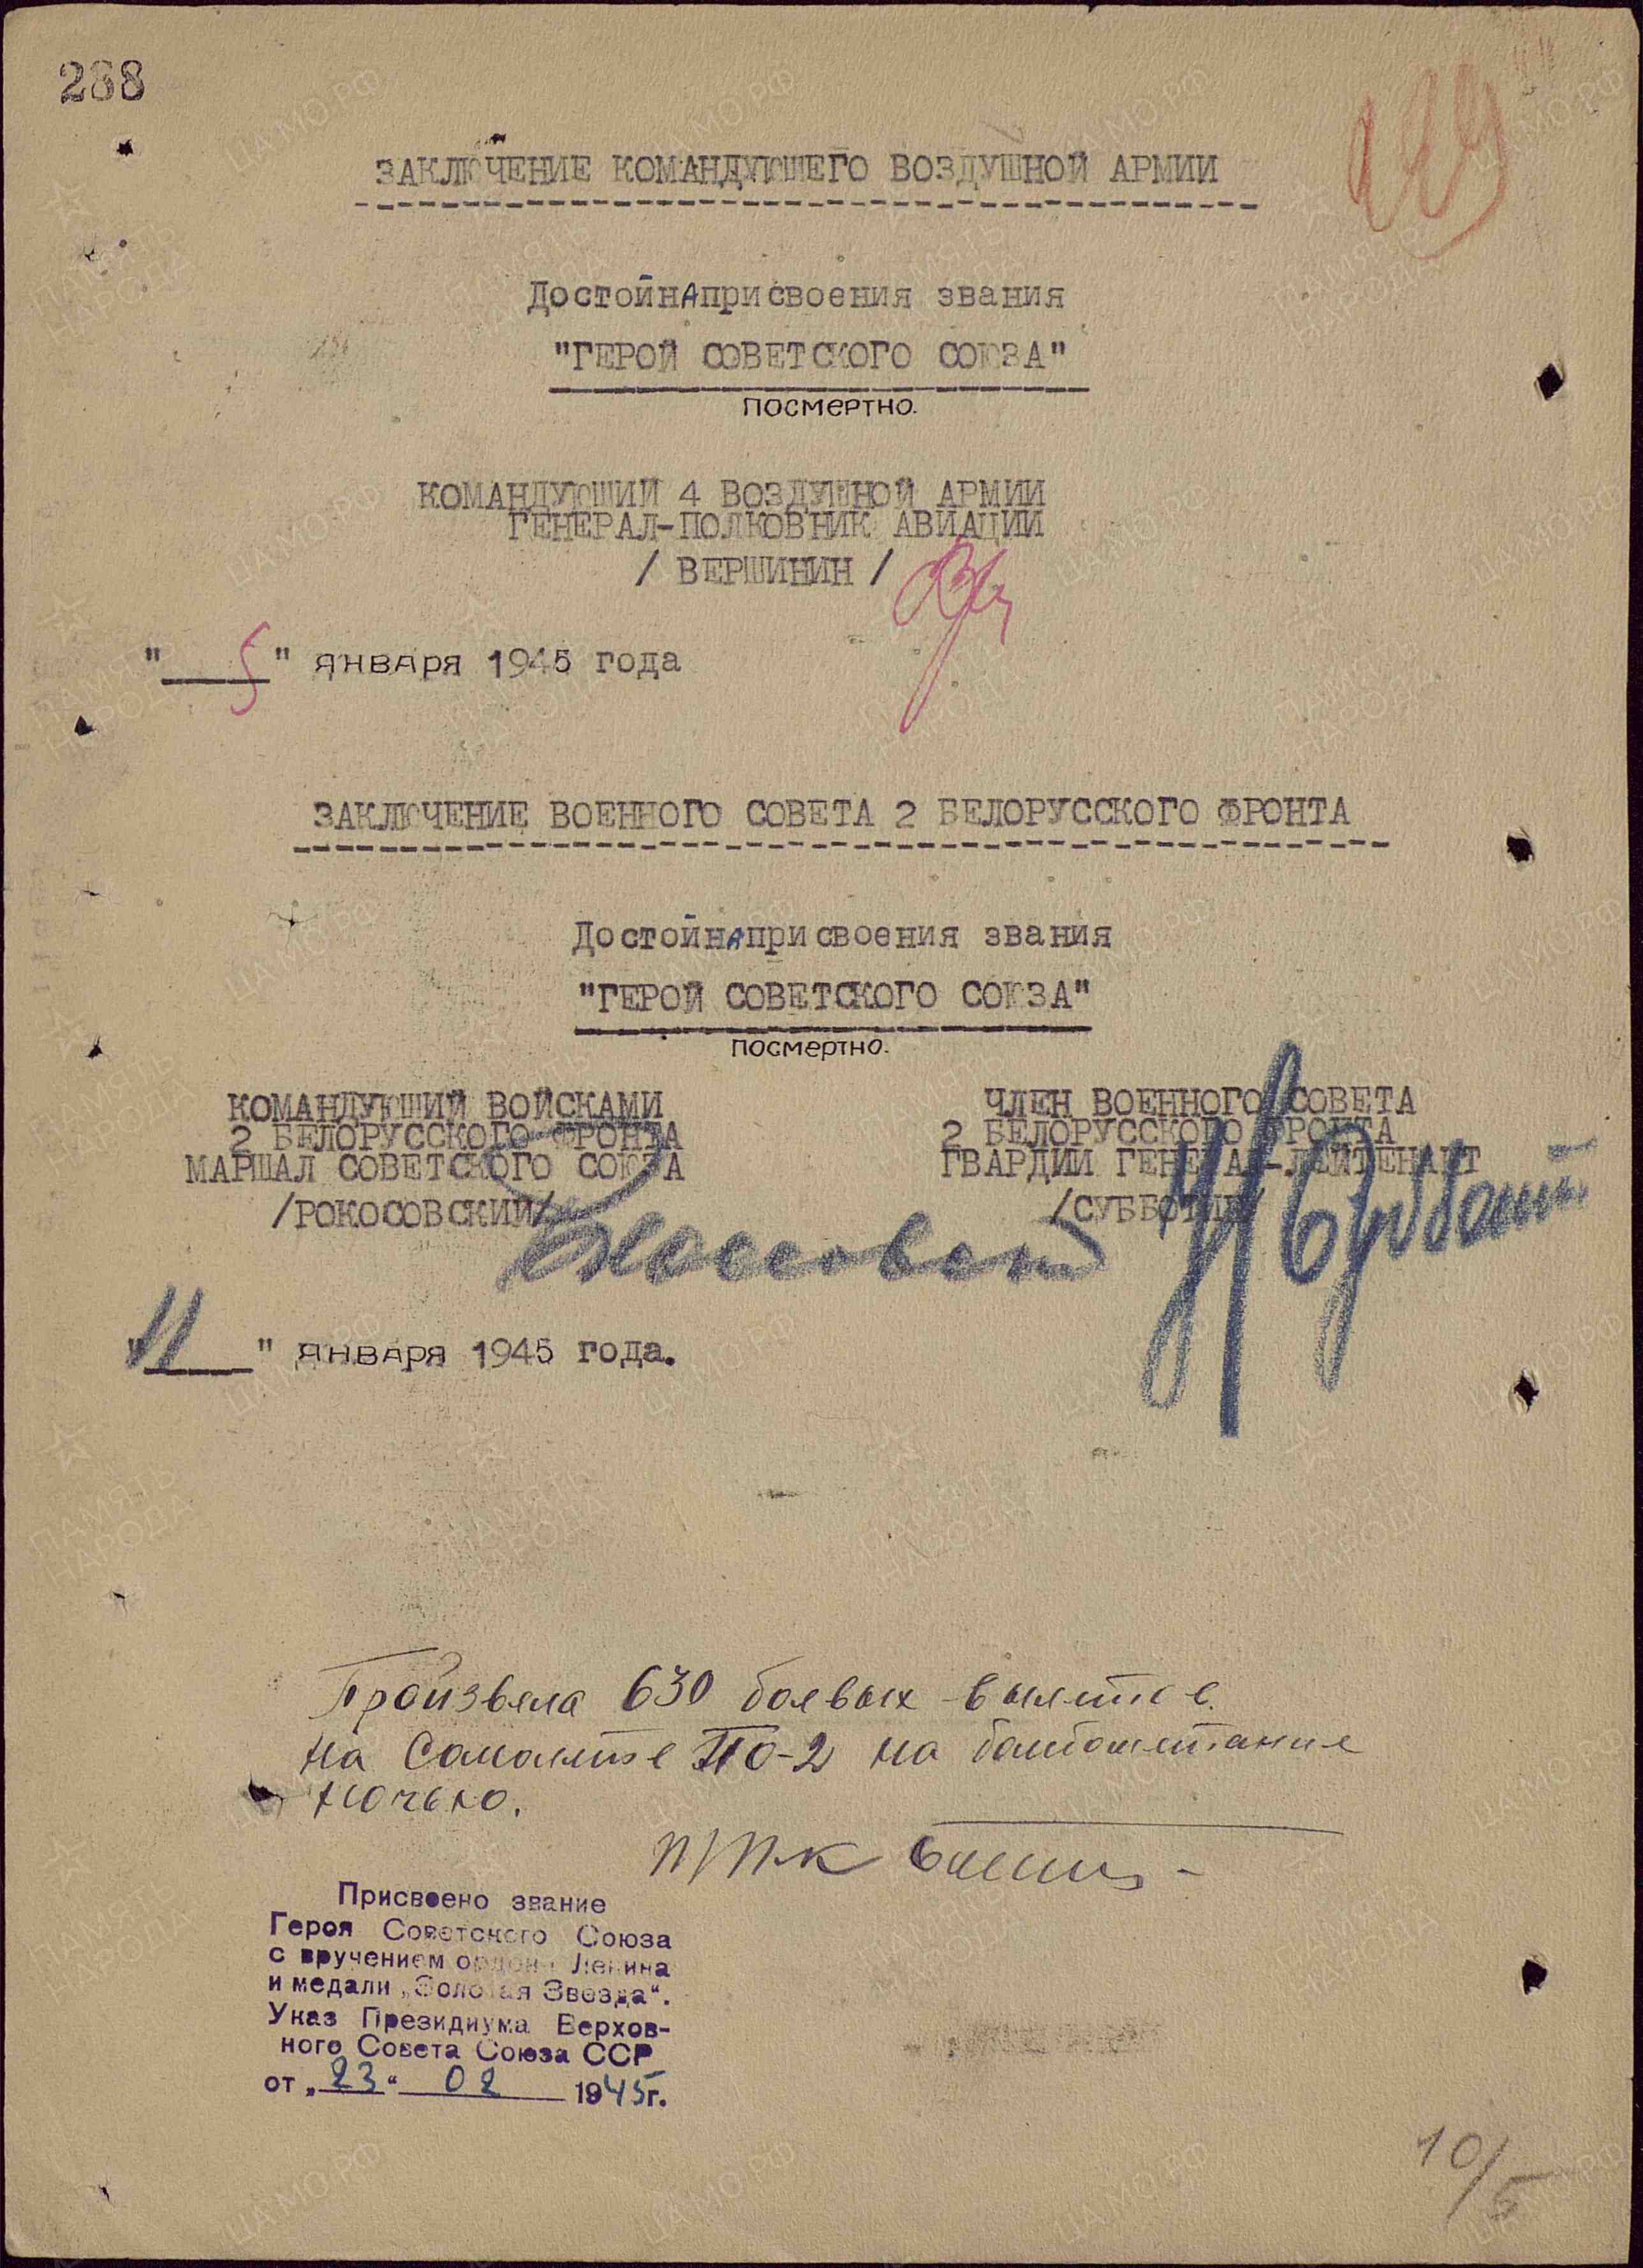 288
ЗАКЛЮЧЕНИЕ КОМАНДУЮЩЕГО ВОЗДУШНОЙ АРМИИ
ДостойнА присвоения звания
"ГЕРОЙ СОВЕТСКОГО СОЮЗА"
посмертно.
КОМАНДУЮЩИЙ 4 ВОЗДУШНОЙ АРМИИ
ГЕНЕРАЛ-ПОЛКОВНИК АВИАЦИИ
/ ВЕРШИНИН /
" 5 " января 1945 года
ЗАКЛЮЧЕНИЕ ВОЕННОГО СОВЕТА 2 БЕЛОРУССКОГО ФРОНТА
ДостойнА присвоения звания
"ГЕРОЙ СОВЕТСКОГО СОЮЗА"
посмертно.
КОМАНДУЮЩИЙ ВОЙСКАМИ
2 БЕЛОРУССКОГО ФРОНТА
МАРШАЛ СОВЕТСКОГО СОЮЗА
/РОКОСОВСКИЙ/
ЧЛЕН ВОЕННОГО СОВЕТА
2 БЕЛОРУССКОГО ФРОНТА
ГВАРДИИ ГЕНЕРАЛ-ЛЕЙТЕНАНТ
/СУББОТИН/
"11" января 1945 года.
Произвела 630 боевых вылетов
на самолете ПО-2 на бомбометание
ночью.
п/п-к
Присвоено звание
Героя Советского Союза
с вручением ордена Ленина
и медали „Золотая Звезда“.
Указ Президиума Верхов-
ного Совета Союза ССР
от „23“ 02 1945г.
10/5
ПАМЯТЬ НАРОДА
ЦАМО.РФ